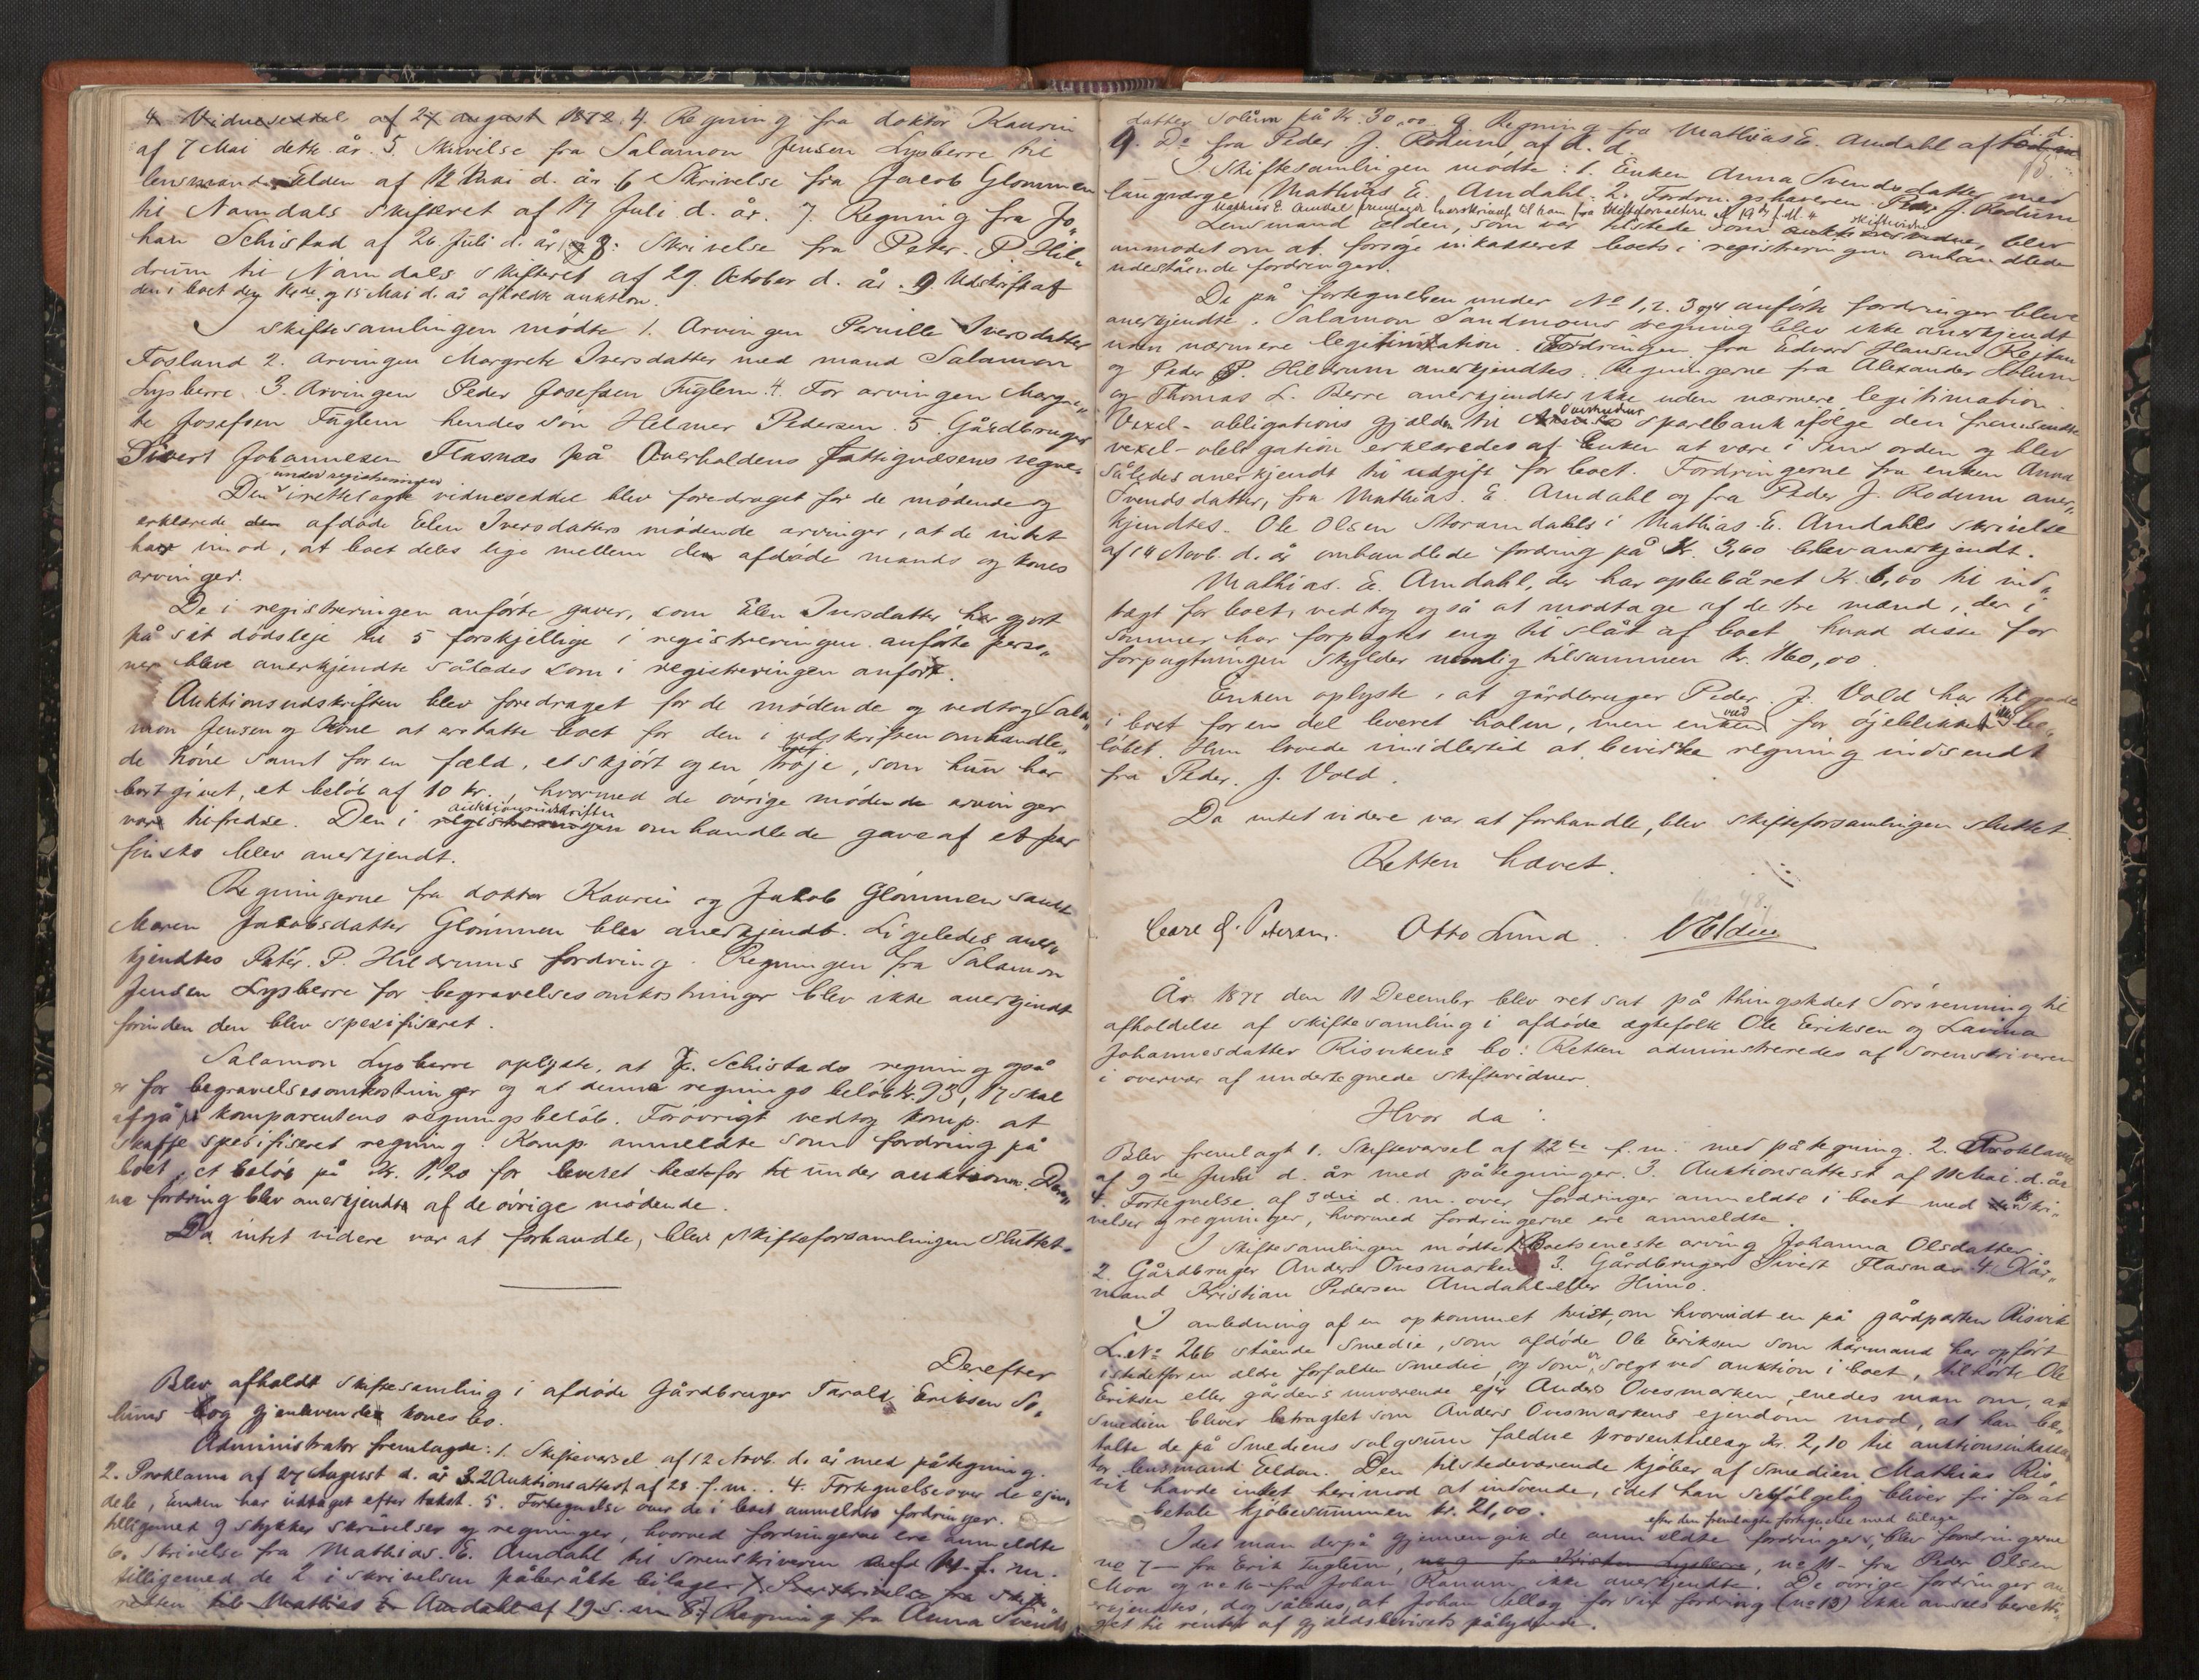 4 Vidneseddel af 27 august 1872. 4. Regning fra doktor Kaurin
af 7 Mai dette år. 5. Skrivelse fra Salamon Jensen Lysberre til
lensmand Elden af 12 Mai d. år 6 Skrivelse fra Jacob Glømmen
til Namdals skifteret af 17 Juli d. år. 7. Regning fra Jo„
han Schistad af 26. Juli d. år, og 8: Skrivelse fra Peter P. Hil„
drum til Namdals skifteret af 29. October d. år. 9 Udskrift af
den i boet den 14de og 15 Mai d. år afholdte auktion.
I skiftesamlingen mødte 1. Arvingen Pernille Iversdatter
Fosland 2. arvingen Margrete Iversdatter med mand Salamon
Lysberre. 3. Arvingen Peder Josefsen Fuglem. 4. For arvingen Margre„
te Josefsen Fuglem hendes søn Helmer Pedersen. 5 Gårdbruger
Sivert Johannesen Flasnæs på Overhaldens fattigvæsens vegne.
under registreringen
Den irettelagte vidneseddel blev foredraget for de mødende og
erklærede den afdøde Elen Iversdatters mødende arvinger, at de intet
har imod, at boet deles lige mellem den afdøde mands og kones
arvinger.
De i registreringen anførte gaver, som Elen Iversdatter har gjort
på sit dødsleje til 5 forskjellige i registreringen anførte perso„
ner blev anerkjendte således som i registreringen anført.
Auktionsudskriften blev foredraget for de mødende og vedtog Sala„
mon Jensen og Kone at erstatte boet for den i udskriften omhandle„
de høne samt for en fæld, et skjørt og en trøje, som hun har
bortgivet, et beløb af 10 kr., hvormed de øvrige mødende arvinger
auktionsudskriften
var tilfredse. Den i registreringen omhandlede gave af et par
finsko blev anerkjendt.
Regningerne fra doktor Kaurin og Jakob Glømmen samt
Maren Jakobsdatter Glømmen blev anerkjendt. Ligeledes aner„
kjendtes Peter. P. Hildrums fordring. Regningen fra Salamon
Jensen Lysberre for begravelsesomkostninger blev ikke anerkjendt
forinden den blev spesifiseret.
Salamon Lysberre oplyste, at J. Schistads regning også
er for begravelsesomkostninger og at denne regnings beløb kr. 93,17 skal
afgå i komparentens regningsbeløb. Forøvrigt vedtog komp. at
skaffe spesifiseret regning. Komp. anmeldte som fordring på
boet, et beløb på Kr. 1,20 for leveret hestefor til under auktionen. Den„
ne fordring blev anerkjendt af de øvrige mødende.
Da intet videre var at forhandle, blev skifteforsamlingen sluttet.
Derefter
Blev afholdt skiftesamling i afdøde Gårdbruger Tarald Eriksen So„
lums og gjenlevende kones bo.
Administrator fremlagde: 1. Skiftevarsel af 12 Novb. d. år med påtegning.
2. Proklama af 27 August d. år 3. 2 Auktionsattest af 28. f. m. 4. Fortegnelse over de ejen„
dele, Enken har udtaget efter takst. 5. Fortegnelse over de i boet anmeldte fordringer.
tilligemed 9 stykker skrivelser og regninger, hvorved fordringerne ere anmeldte
6. Skrivelse fra Mathias. E. Amdahl til sorenskriveren af 14. f. m.
tilligemed de 2 i skrivelsen påberåbte bilager. 7. Skrivelse fra skifte
retten til Mathias E. Amdahl af 19 s. m. 8. Regning fra Anna Svends
datter Solum på kr. 30,00 9 Regning fra Mathias E. Amdahl af d. d.
9. Do fra Peder J. Rodum af d. d.
I Skiftesamlingen mødte: 1. Enken Anna Svendsdatter med
laugværge Mathias E. Amdahl. 2. Fordringshaveren Peder J. Rodum
Mathias E. Amdal fremlagde Overskrivelse til ham fra skifteforvalteren af 19de f. M. 4
skiftevidne
Lensmand Elden, som var tilstede som blev
anmodet om at forsøge inkasseret boets i registreringen omhandlede
udestående fordringer.
De på fortegnelsen under No 1, 2. 3 og 4 anførte fordringer bleve
anerkjendte. Salamon Sandmoens regning blev ikke anerkjendt
uden nærmere legitimation. Fordringen fra Edvard Hansen
og Peder P. Hildrum anerkjendtes. Regningerne fra Alexander Holum
og Thomas L. Berre anerkjendtes ikke uden nærmere legitimation.
Overhaldens
Vexel-obligations gjælden til sparebank ifølge den fremsendte
vexel-obligation erklæredes af Enken at være i sin orden og blev
således anerkjendt til udgift for boet. Fordringerne fra enken Anna
Svendsdatter, fra Mathias. E. Amdahl og fra Peder J. Rodum aner„
kjendtes. Ole Olsen Storamdahls i Mathias. E. Amdahls skrivelse
af 14 Novb. d. år omhandlede fordring på Kr. 3,60 blev anerkjendt.
Mathias. E. Amdahl, der har oppebåret Kr. 6,00 til ind„
tægt for boet, vedtog også at modtage af de tre mænd, der i
sommer har forpagtet eng til slåt af boet hvad disse for
forpagtningen skylder nemlig tilsammen kr. 160,00.
Enken oplyste, at gårdbruger Peder. J. Vold har tilgode
i boet for en del leveret halm, men enken ved for øjeblikket ikke be„
løbet. Hun lovede imidlertid at bevirke regning indsendt
fra Peder. J. Vold.
Da intet videre var at forhandle, blev skifteforsamlingen sluttet.
Retten hævet.
Carl J. Petersen. Otto Lund. Elden
År 1877 den 11 December blev ret sat på thingstedet Sørøvenning til
afholdelse af skiftesamling i afdøde ægtefolk Ole Eriksen og Lavina
Johannesdatter Risvikens bo: Retten administreredes af sorenskriveren
i overvær af undertegnede skiftevidner.
Hvor da:
Blev fremlagt 1. Skiftevarsel af 22de f. m. med påtegning. 2. Proklama
af 9de Juni d. år med påtegninger. 3. Auktionsattest af 11 Mai. d. år
4. Fortegnelse af 3die d. m. over fordringer anmeldte i boet med skri„
velser og regninger, hvormed fordringerne ere anmeldte.
I Skiftesamlingen mødte 1. Boets eneste arving Johanna Olsdatter.
2. Gårdbruger Anders Ovesmarken 3. Gårdbruger Sivert Flasnæs 4. Kår„
mand Kristian Pedersen Amdahl eller Himo.
I anledning af en opkommet tvist, om hvorvidt en på gårdparten Risvik
L. No 266 stående Smedie, som afdøde Ole Eriksen som kårmand har opført
istedetfor en ældre forfalden smedie, og som er solgt ved auktion i boet, tilhørte Ole
Eriksen eller gårdens nuværende ejer Anders Ovesmarken, enedes man om, at
Smedien bliver betragtet som Anders Ovesmarkens ejendom mod, at han be„
talte de på Smediens salgsum faldne prosenttillæg kr. 2,10 til auktionsinkassa
tor lensmand Elden. Den tilstedeværende kjøber af Smedien Mathias Ris
vik havde intet herimod at indvende, idet han selvfølgelig bliver fri for at
betale kjøbesummen kr. 21,00.
efter den fremlagte fortegnelse med bilage
Idet man derpå gjennemgik de anmeldte fordringer, blev fordringerne
no 7 – fra Erik Fuglem, no 9 – fra Kristen Lysberre, no 11 – fra Peder Olsen
Moa og no 16 – fra Johan Ranum ikke anerkjendte. De øvrige fordringer an
erkjendtes, dog således, at Johan Sellæg for sin fordring (no 13) ikke ansees beretti„
get til renter af gjældsbevisets pålydende.